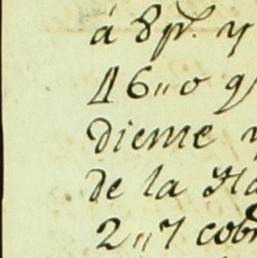 á 8p.^s y
46,,0 q
dieme
de la Ha
2,,7 cob